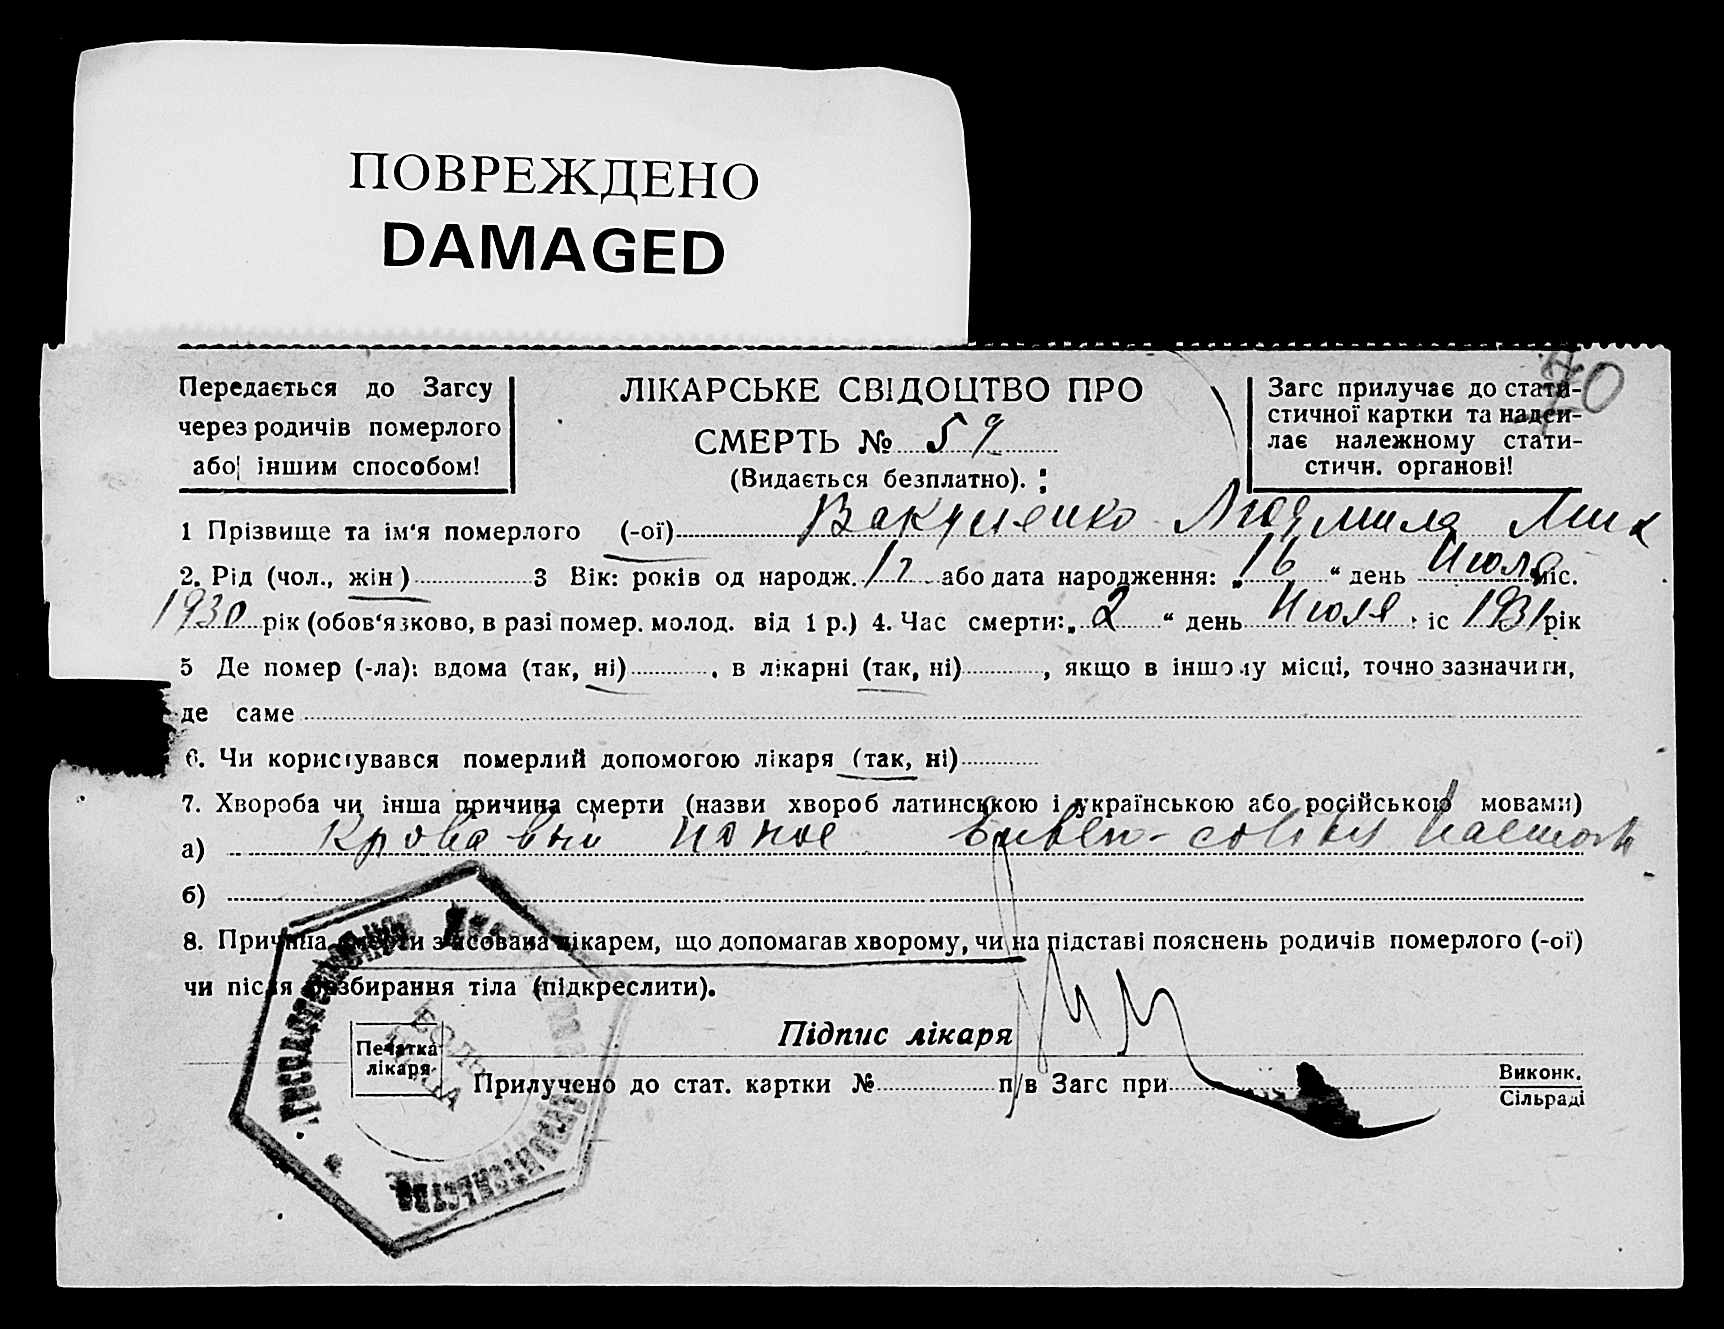 ПОВРЕЖДЕНО
DAMAGED
70
Передається до Загсу
через родичів померлого
або іншим способом!
ЛІКАРСЬКЕ СВІДОЦТВО ПРО
СМЕРТЬ № 59
(Видається безплатно).
Загс прилучає до стати-
стичної картки та надси-
лає належному стати-
стичн. органові!
1 Прізвище та ім'я померлого (-ої) Вакуленко Людмила Мих
2. Рід (чол., жін) 3 Вік: років од народж. 1 г. або дата народження: „16“ день Июля міс.
1930 рік (обов'язково, в разі помер. молод. від 1 р.) 4. Час смерти: „2“ день Июля міс 1931 рік
5 Де помер (-ла): вдома (так, ні), в лікарні (так, ні), якщо в іншому місці, точно зазначити,
де саме
6. Чи користувався померлий допомогою лікаря (так, ні)
7. Хвороба чи інша причина смерти (назви хвороб латинською і українською або російською мовами)
а) Кровавый понос Entero-colitis haemorh
б)
8. Причина смерти записована лікарем, що допомагав хворому, чи на підставі пояснень родичів померлого (-ої)
чи після розбирання тіла (підкреслити).
Підпис лікаря
Печатка
лікаря
БОЛЬ
НИЦА
Прилучено до стат. картки № п/в Загс при Виконк.
Сільраді